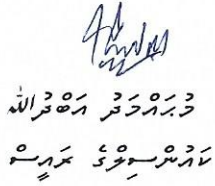 މުޙައްމަދު ޢަބްދުﷲ
ކައުންސިލްގެ ރައީސް